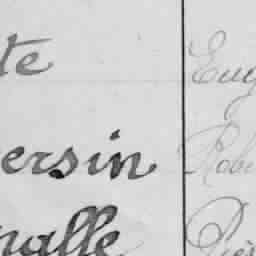 te Eug
ersin Robe
nalle Pièr